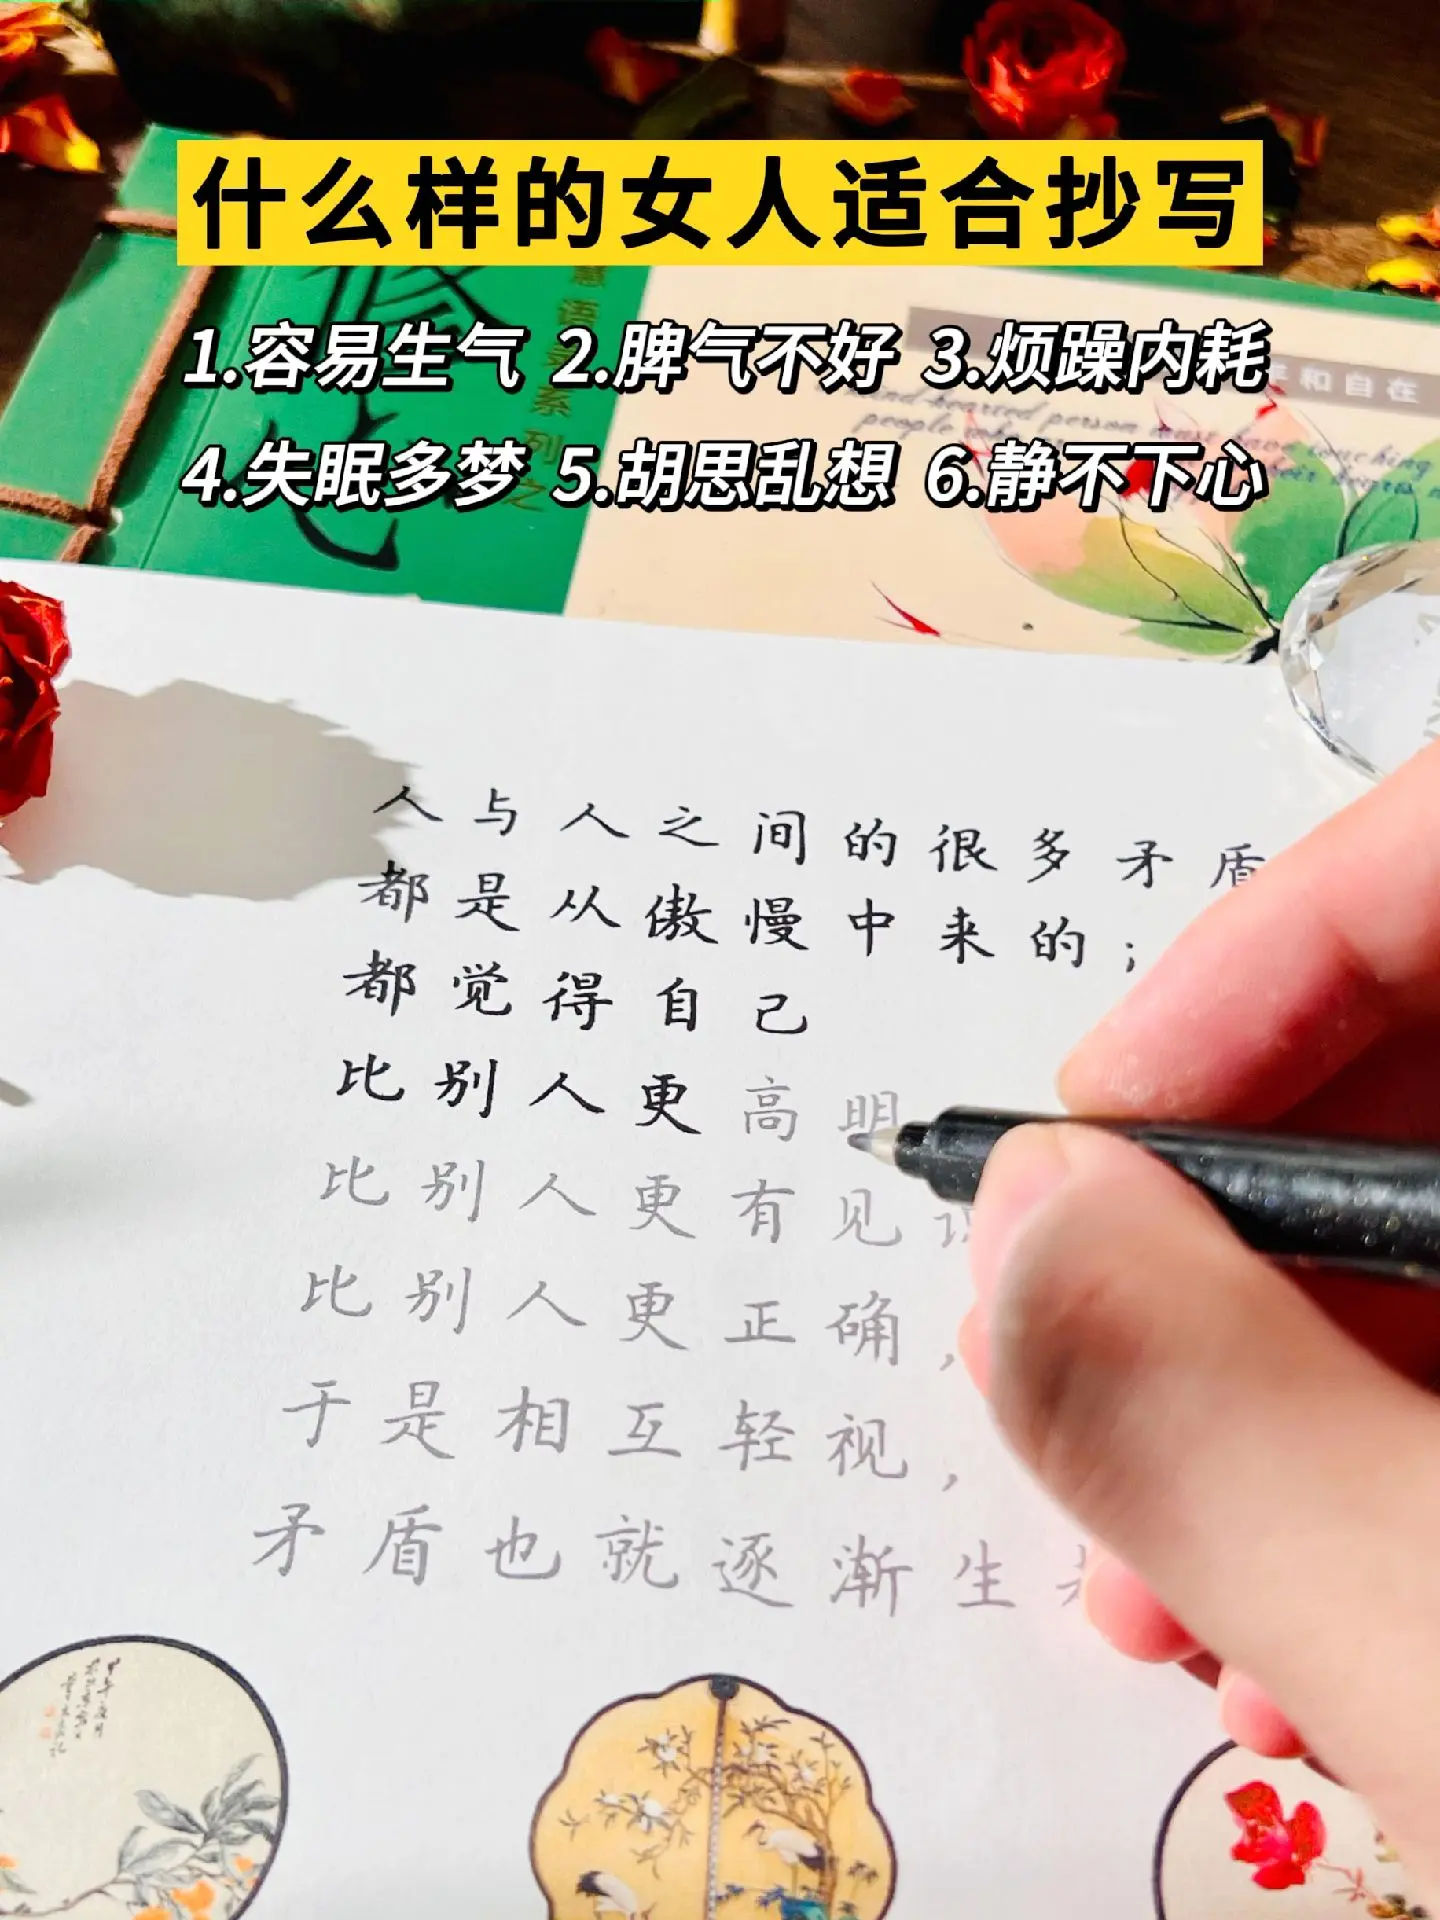 什么样的女人适合抄写
1.容易生气 2.脾气不好 3.烦躁内耗
4.失眠多梦 5.胡思乱想 6.静不下心
语
系列之
和自在
人与人之间的很多矛盾
都是从傲慢中来的；
都觉得自己
比别人更高明
比别人更有见识
比别人更正确，
于是相互轻视，
矛盾也就逐渐生